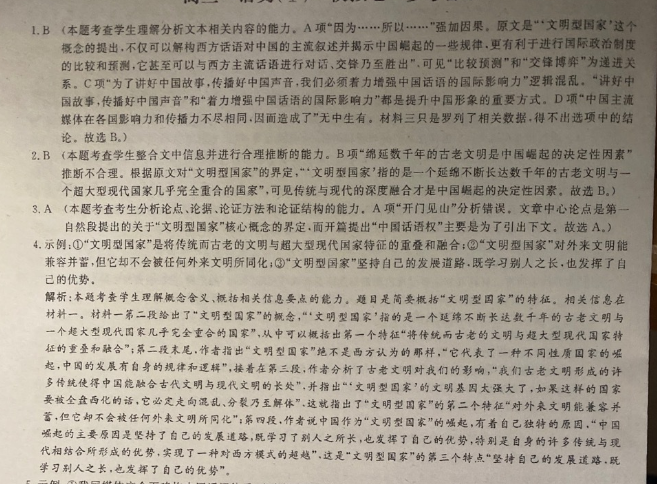 1. B (本题考查学生理解分析文本相关内容的能力。A项“因为……所以……”强加因果。原文是“‘文明型国家’这个
概念的提出,不仅可以解构西方话语对中国的主流叙述并揭示中国崛起的一些规律,更有利于进行国际政治制度
的比较和预测,它甚至可以与西方主流话语进行对话、交锋乃至胜出”,可见“比较预测”和“交锋博弈”为递进关
系。C项“为了讲好中国故事,传播好中国声音,我们必须着力增强中国话语的国际影响力”逻辑混乱。“讲好中
国故事,传播好中国声音”和“着力增强中国话语的国际影响力”都是提升中国形象的重要方式。D项“中国主流
媒体在各国影响力和传播力不尽相同,因而造成了”无中生有。材料三只是罗列了相关数据,得不出选项中的结
论。故选B。)
2. B (本题考查学生整合文中信息并进行合理推断的能力。B项“绵延数千年的古老文明是中国崛起的决定性因素”
推断不合理。根据原文对“文明型国家”的界定,“‘文明型国家’指的是一个延绵不断长达数千年的古老文明与一
个超大型现代国家几乎完全重合的国家”,可见传统与现代的深度融合才是中国崛起的决定性因素。故选B。)
3. A (本题考查考生分析论点、论据、论证方法和论证结构的能力。A项“开门见山”分析错误。文章中心论点是第一
自然段提出的关于“文明型国家”核心概念的界定,而开篇提出“中国话语权”主要是为了引出下文。故选A。)
4. 示例:①“文明型国家”是将传统而古老的文明与超大型现代国家特征的重叠和融合;②“文明型国家”对外来文明能
兼容并蓄,但它却不会被任何外来文明所同化;③“文明型国家”坚持自己的发展道路,既学习别人之长,也发挥了自
己的优势。
解析:本题考查学生理解概念含义、概括相关信息要点的能力。题目是简要概括“文明型国家”的特征。相关信息在
材料一。材料一第二段给出了“文明型国家”的概念,“‘文明型国家’指的是一个延绵不断长达数千年的古老文明与
一个超大型现代国家几乎完全重合的国家”,从中可以概括出第一个特征“将传统而古老的文明与超大型现代国家特
征的重叠和融合”;第二段末尾,作者指出“文明型国家”绝不是西方认为的那样,“它代表了一种不同性质国家的崛
起,中国的发展有自身的规律和逻辑”,接着在第三段,作者分析了古老文明对我们的影响,“我们古老文明形成的许
多传统使得中国能融合古代文明与现代文明的长处”,并指出“‘文明型国家’的文明基因太强大了,如果这样的国家
要被全盘西化的话,它必定走向混乱、分裂乃至解体”,这就指出了“文明型国家”的第二个特征“对外来文明能兼容并
蓄,但它却不会被任何外来文明所同化”;第四段,作者说中国作为“文明型国家”的崛起,有着自己独特的原因,“中国
崛起的主要原因是坚持了自己的发展道路,既学习了别人之所长,也发挥了自己的优势,特别是自身的许多传统与现
代相结合所形成的优势,实现了一种对西方模式的超越”,这是“文明型国家”的第三个特点“坚持自己的发展道路,既
学习别人之长,也发挥了自己的优势”。